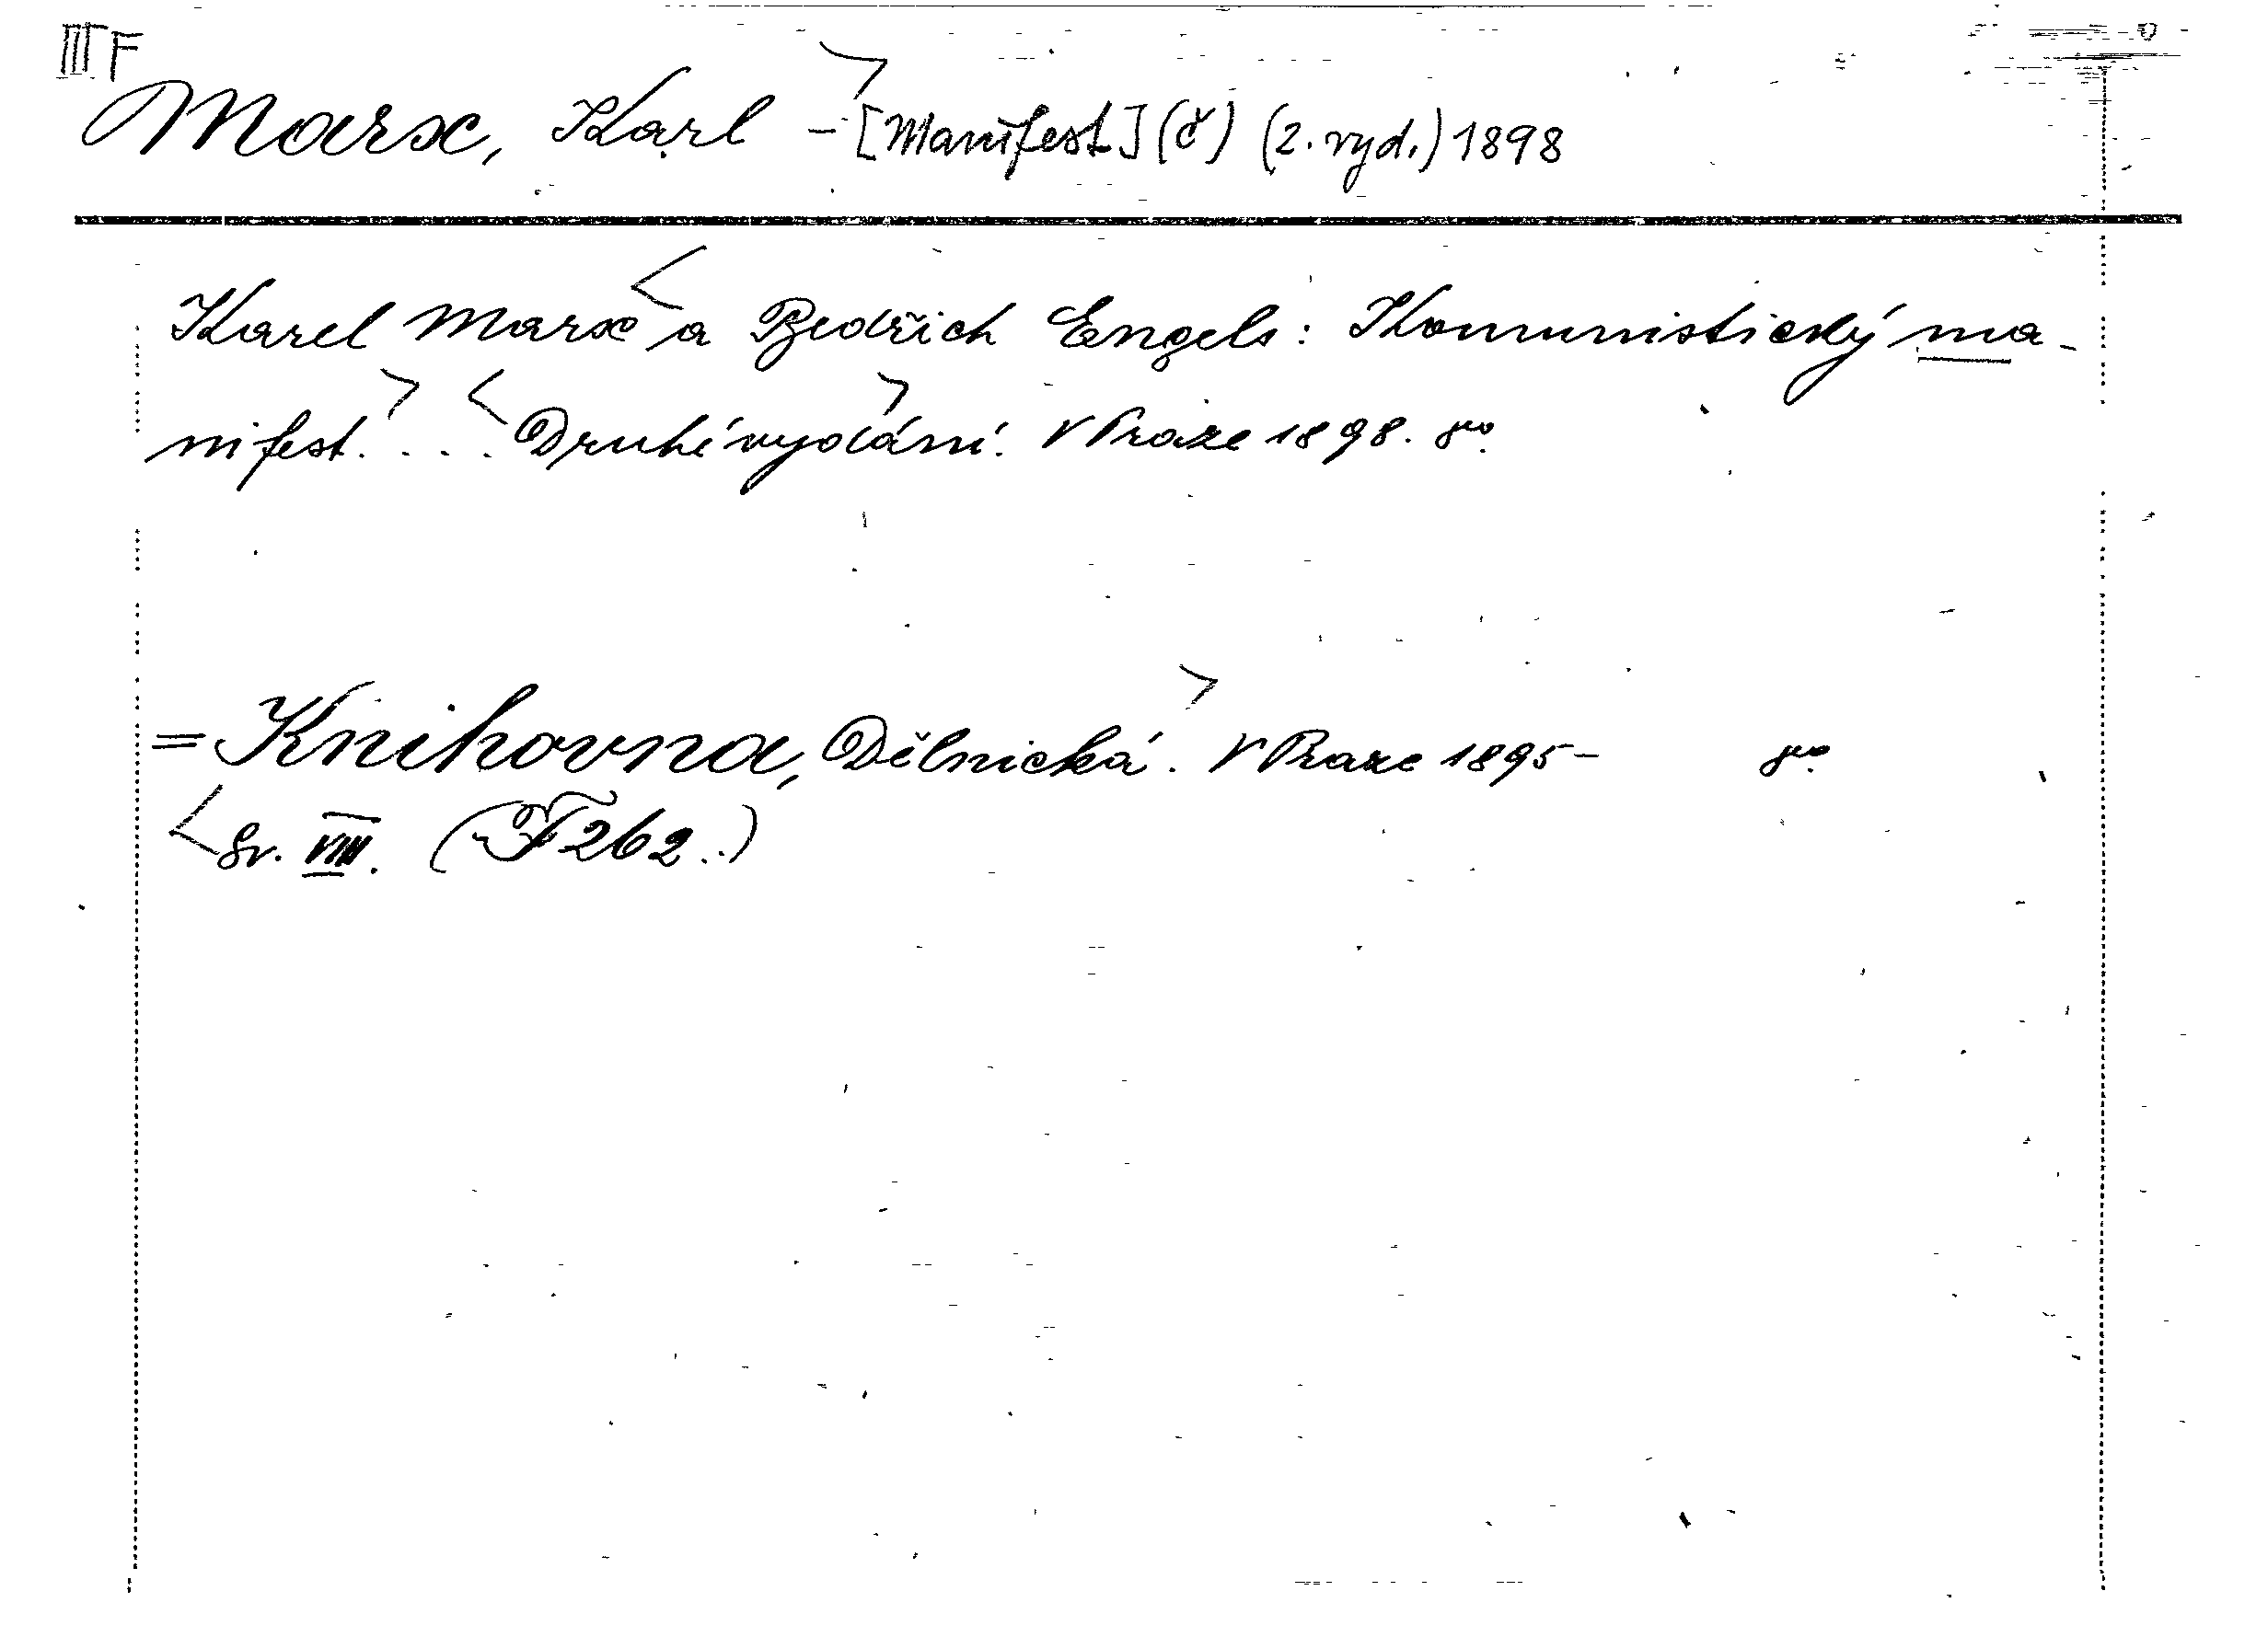 III F
Marx, Karl - [Manifest] (č) (2. vyd.) 1898
Karel Marx a Bedřich Engels: Komunistický ma-
nifest. . . . Druhé vydání. V Praze 1898. 8vo.
= Knihovna, Dělnická. V Praze 1895- 8vo.
Sv. VIII. (F 262..)